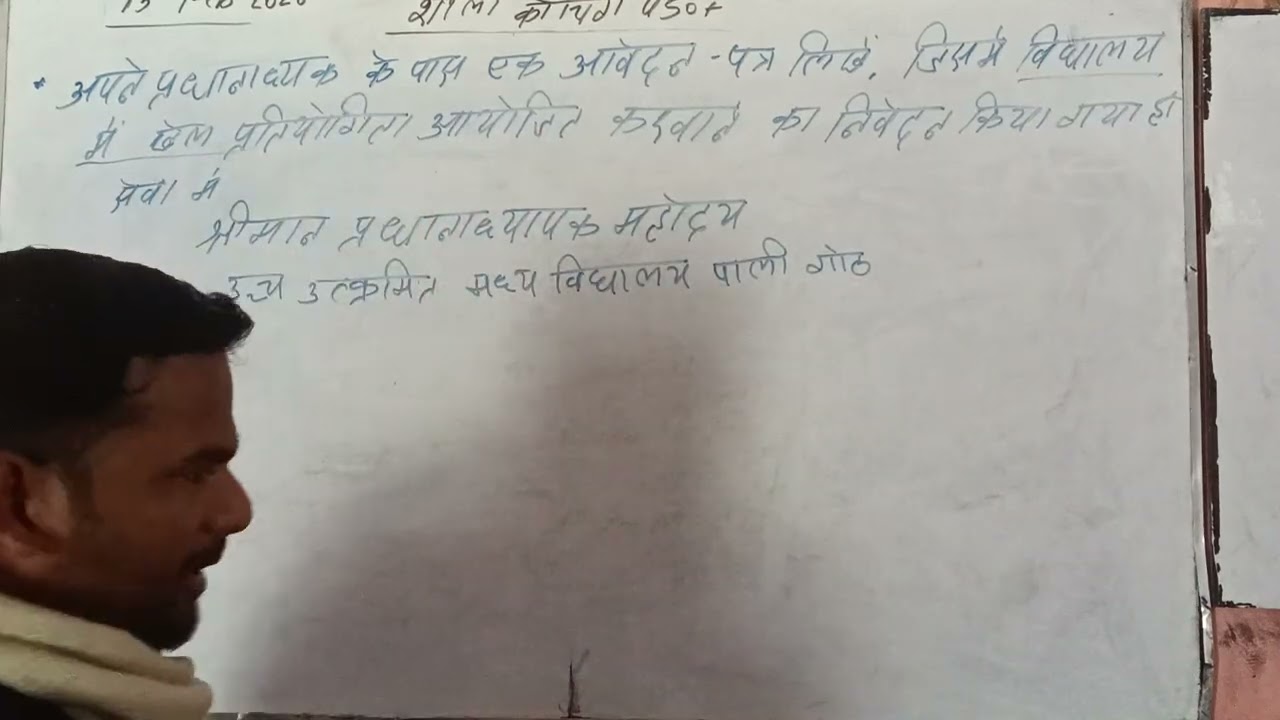 शाला कोचिंग
* अपने प्रधानाध्यक के पास एक आवेदन-पत्र लिखें, जिसमें विद्यालय
में खेल प्रतियोगिता आयोजित करवाने का निवेदन किया गया हो
सेवा में
श्रीमान प्रधानाध्यापक महोदय
उच्च उत्क्रमित मध्य विद्यालय पाली गोठ